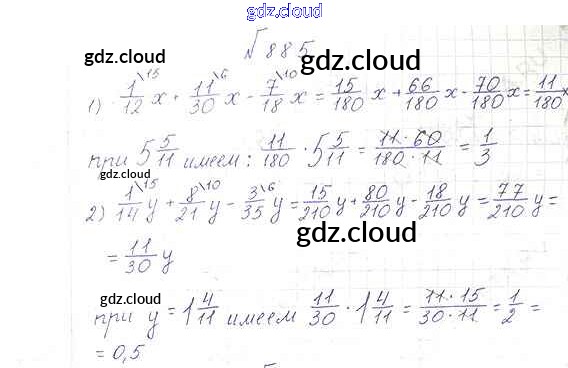 gdz.cloud
№885
gdz.cloud gdz.cloud
1) 1/12\15 x + 11/30\6 x - 7/18\10 x = 15/180 x + 66/180 x - 70/180 x = 11/180 x
при 5 5/11 имеем: 11/180 · 5 5/11 = 11·60/180·11 = 1/3
gdz.cloud
2) 1/14\15 y + 8/21\10 y - 3/35\6 y = 15/210 y + 80/210 y - 18/210 y = 77/210 y =
gdz.cloud
= 11/30 y
gdz.cloud
при y = 1 4/11 имеем 11/30 · 1 4/11 = 11·15/30·11 = 1/2 =
gdz.cloud
= 0,5